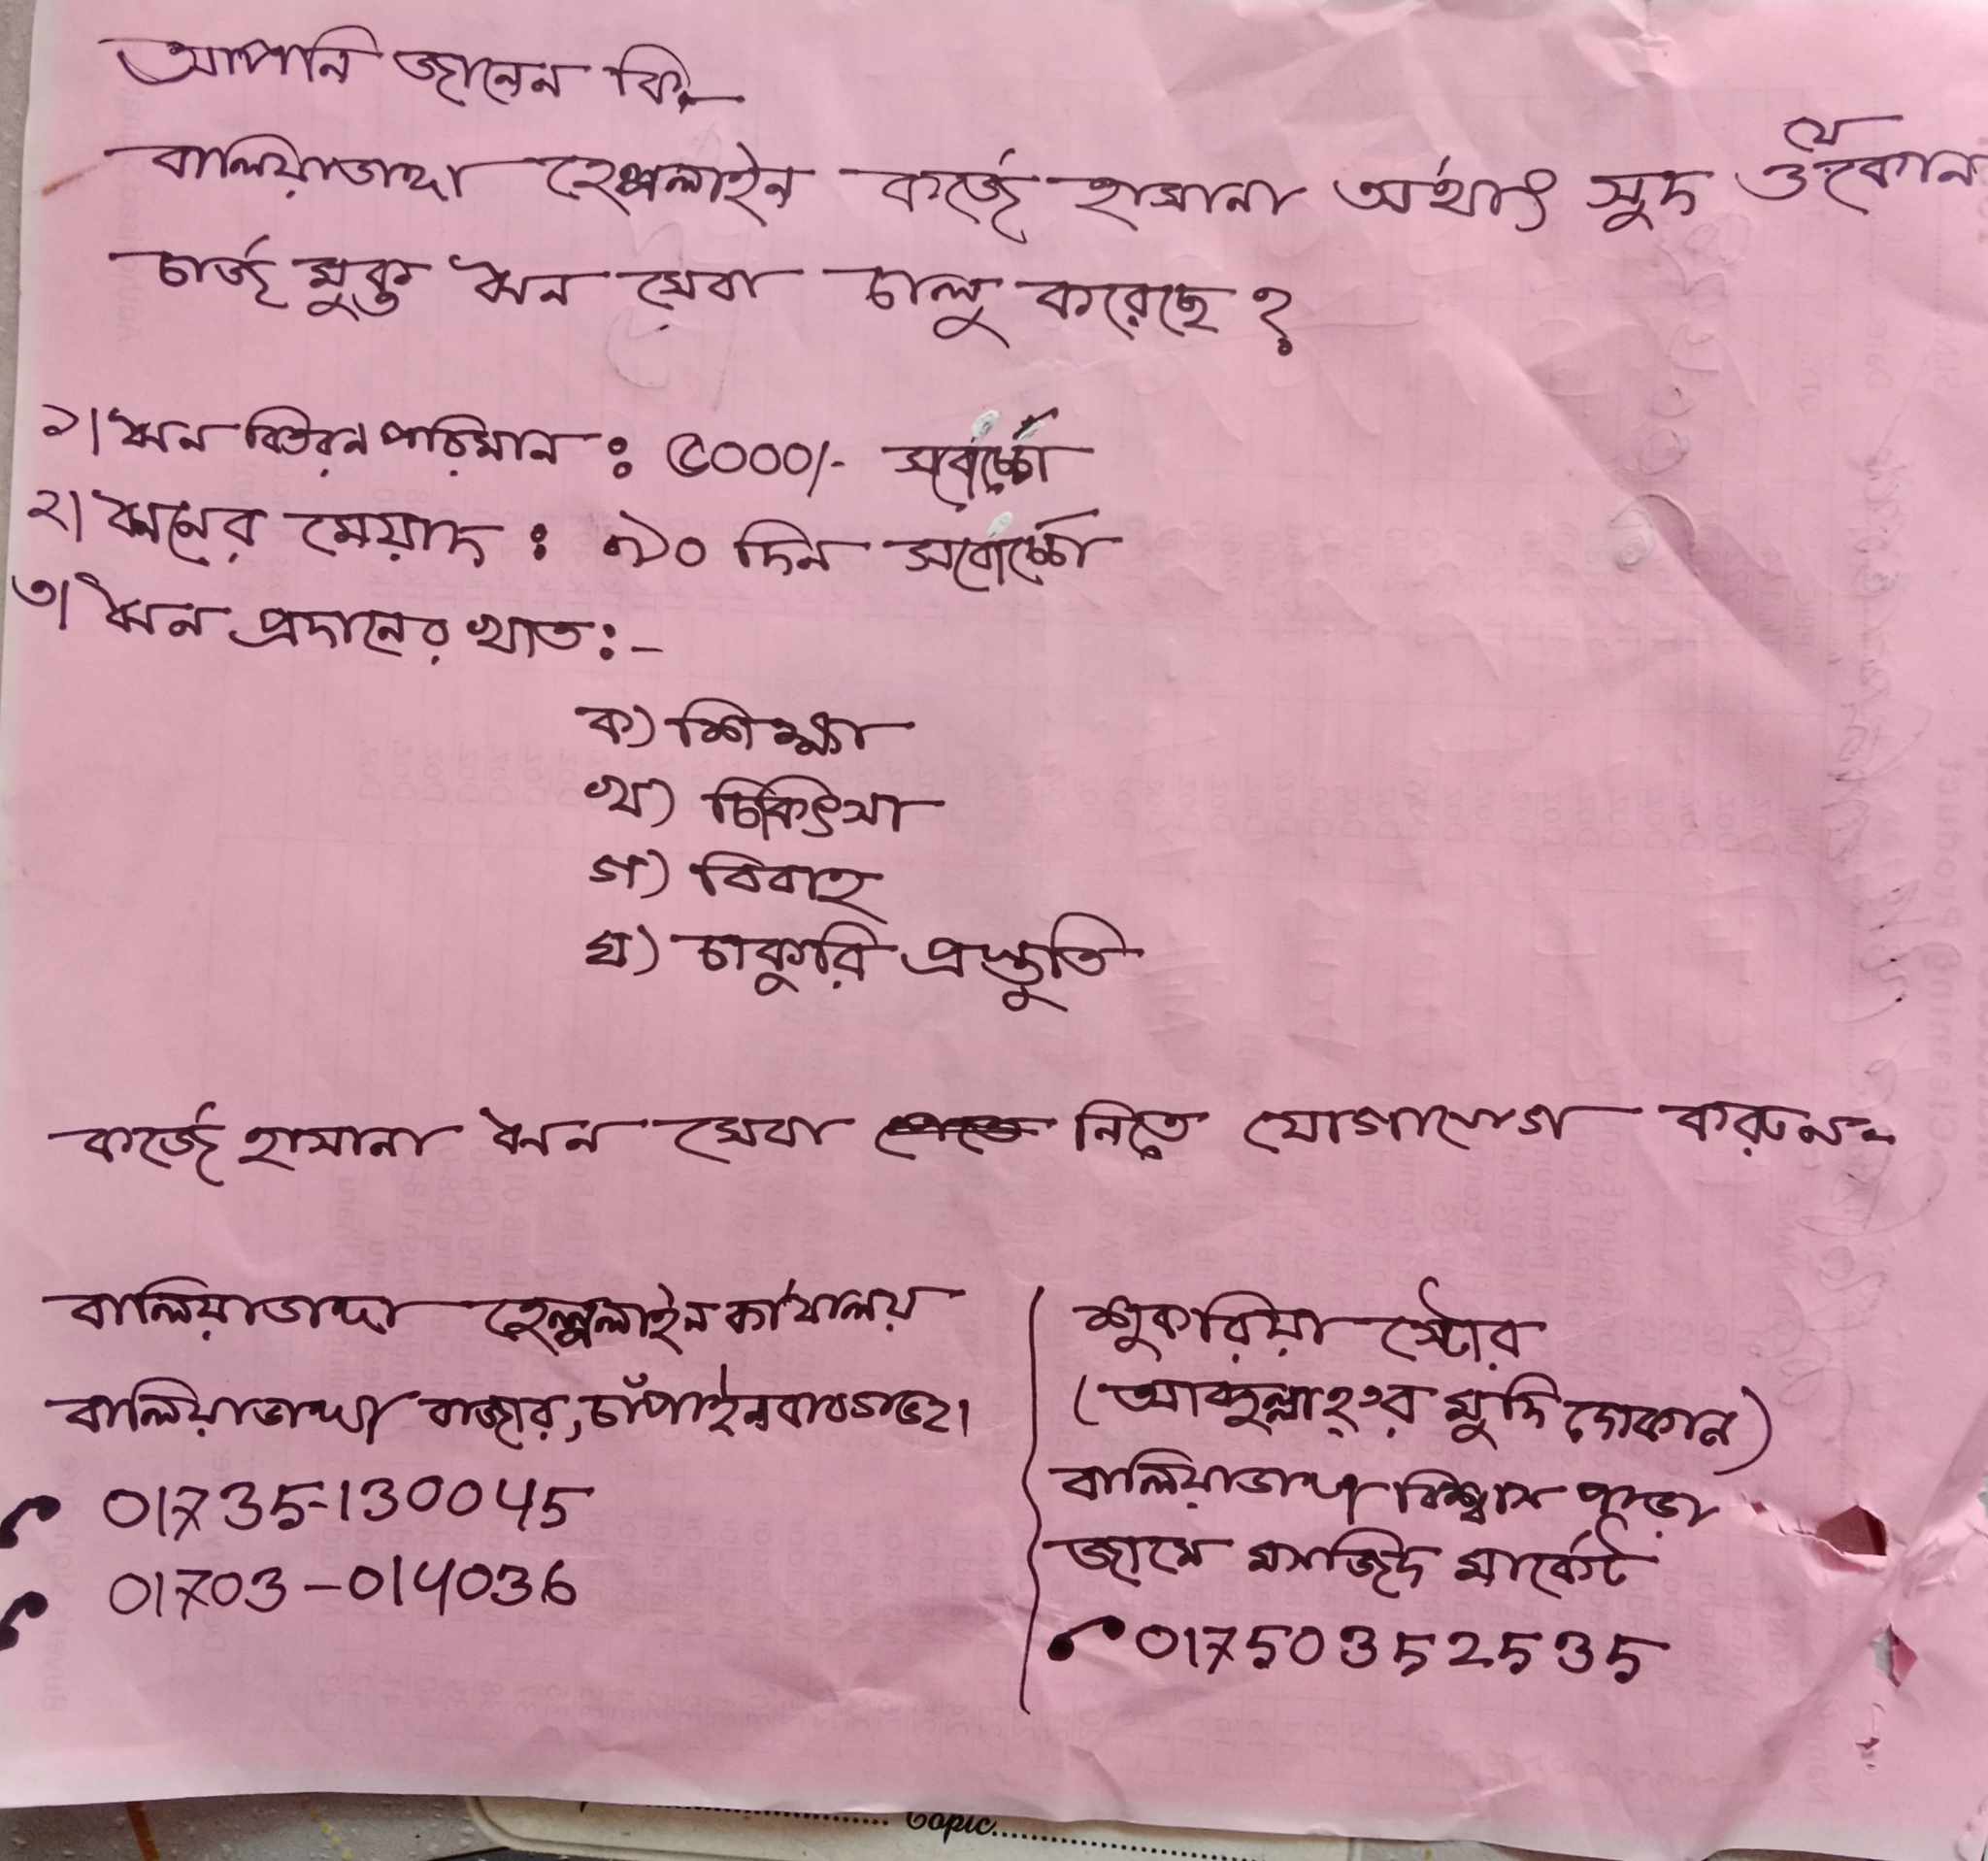 আপনি জানেন কি,
বালিয়াডাঙ্গা হেল্পলাইন কর্জে হাসানা অর্থাৎ সুদ ও যে কোন
চার্জ মুক্ত ঋন সেবা চালু করেছে?
১। ঋন বিতরন পরিমান : ৫০০০/- সর্বোচ্চো
২। ঋনের মেয়াদ : ৯০ দিন সর্বোচ্চো
৩। ঋন প্রদানের খাত:-
ক) শিক্ষা
খ) চিকিৎসা
গ) বিবাহ
ঘ) চাকুরি প্রস্তুতি
কর্জে হাসানা ঋন সেবা নিতে যোগাযোগ করুন-
বালিয়াডাঙ্গা হেল্পলাইন কার্যালয়
বালিয়াডাঙ্গা বাজার, চাঁপাইনবাবগঞ্জ।
01735-130045
01703-014036
শুকরিয়া স্টোর
(আব্দুল্লাহ্'র মুদি দোকান)
বালিয়াডাঙ্গা বিশ্বাস পাড়া
জামে মসজিদ মার্কেট
01750352535
Topic